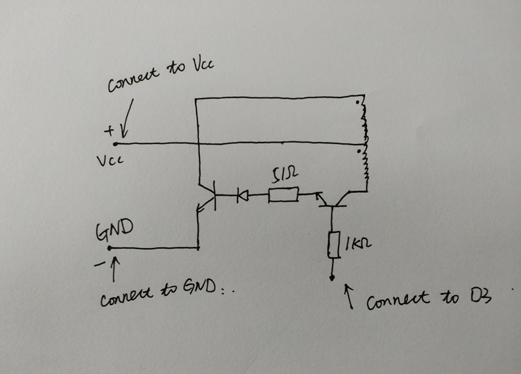 Connect to Vcc
+
Vcc
51Ω
GND
-
1KΩ
Connect to GND:.
Connect to D3